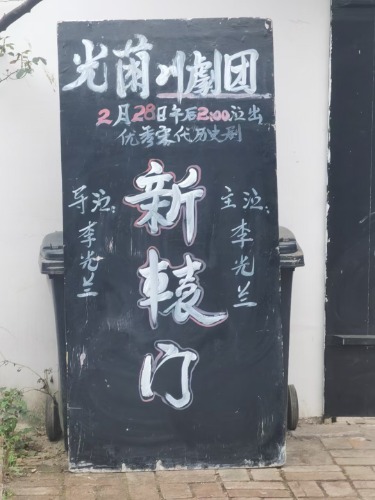 光蘭川劇团
2月28日午后2:00演出
优秀宋代历史剧
导演：李光兰
新轅门
主演：李光兰